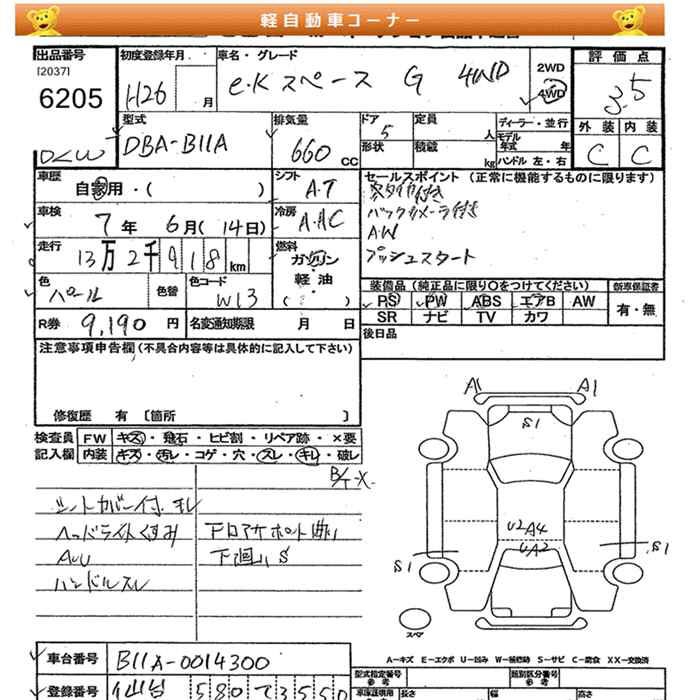 軽自動車コーナー
出品番号 [2037] 6205
初度登録年月 H26 月
車名・グレード eKスペース G 4WD
2WD 4WD
評価点 3.5
外装 内装
C C
型式 DBA-B11A
排気量 660 cc
ドア 5 形状
定員 人
積載 kg
ディーラー・並行
モデル年式 年
ハンドル 左・右
車歴 自家用・( )
シフト A.T
車検 7年 6月(14日)
冷房 A.AC
走行 13万2千918km
燃料 ガソリン 軽油 ( )
色 パール 色替
色コード W13
R券 9,190円 名変通知期限 月 日
セールスポイント (正常に機能するものに限ります)
バックカメラ付き
A.W
プッシュスタート
装備品 (純正品に限り○をつけてください)
新車保証書 有・無
PS PW ABS エアB AW
SR ナビ TV カワ
後日品
注意事項申告欄(不具合内容等は具体的に記入して下さい)
修復歴 有 〔箇所 〕
検査員記入欄
FW キズ・飛石・ヒビ割・リペア跡・×要
内装 キズ・汚レ・コゲ・穴・スレ・キレ・破レ
シートカバー付 キレ
ヘッドライトくすみ
ハンドルスレ
下回りS
A1 A1
S1
U2 A4
UA2
S1 S1
スペア
A-キズ E-エクボ U-凹み W-補修跡 S-サビ C-腐食 XX-交換済
車台番号 B11A-0014300
登録番号 仙台 580 3550
型式指定番号 参考
類別区分番号 参考
長さ 幅 高さ